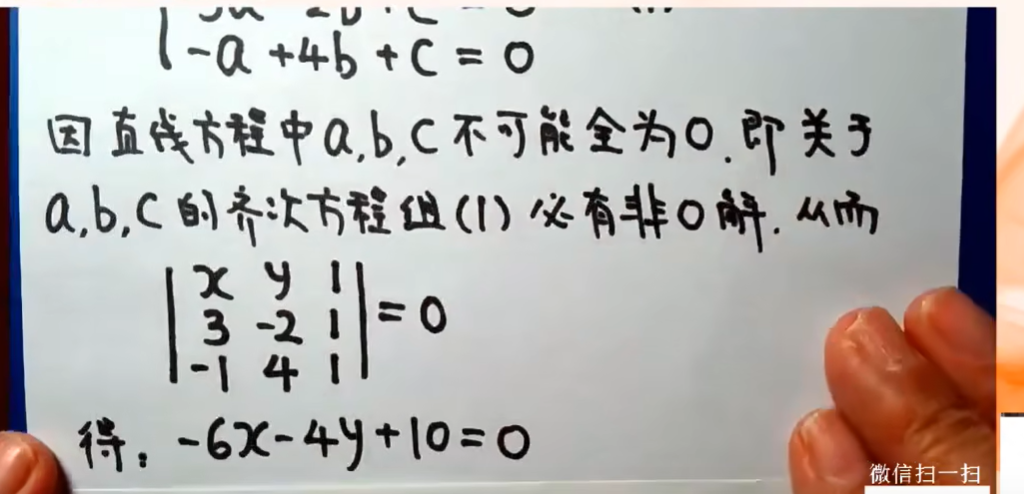 -a+4b+c=0
因直线方程中a,b,c不可能全为0.即关于
a,b,c的齐次方程组(1)必有非0解.从而
| x y 1 |
| 3 -2 1 | = 0
| -1 4 1 |
得:-6x-4y+10=0
微信扫一扫